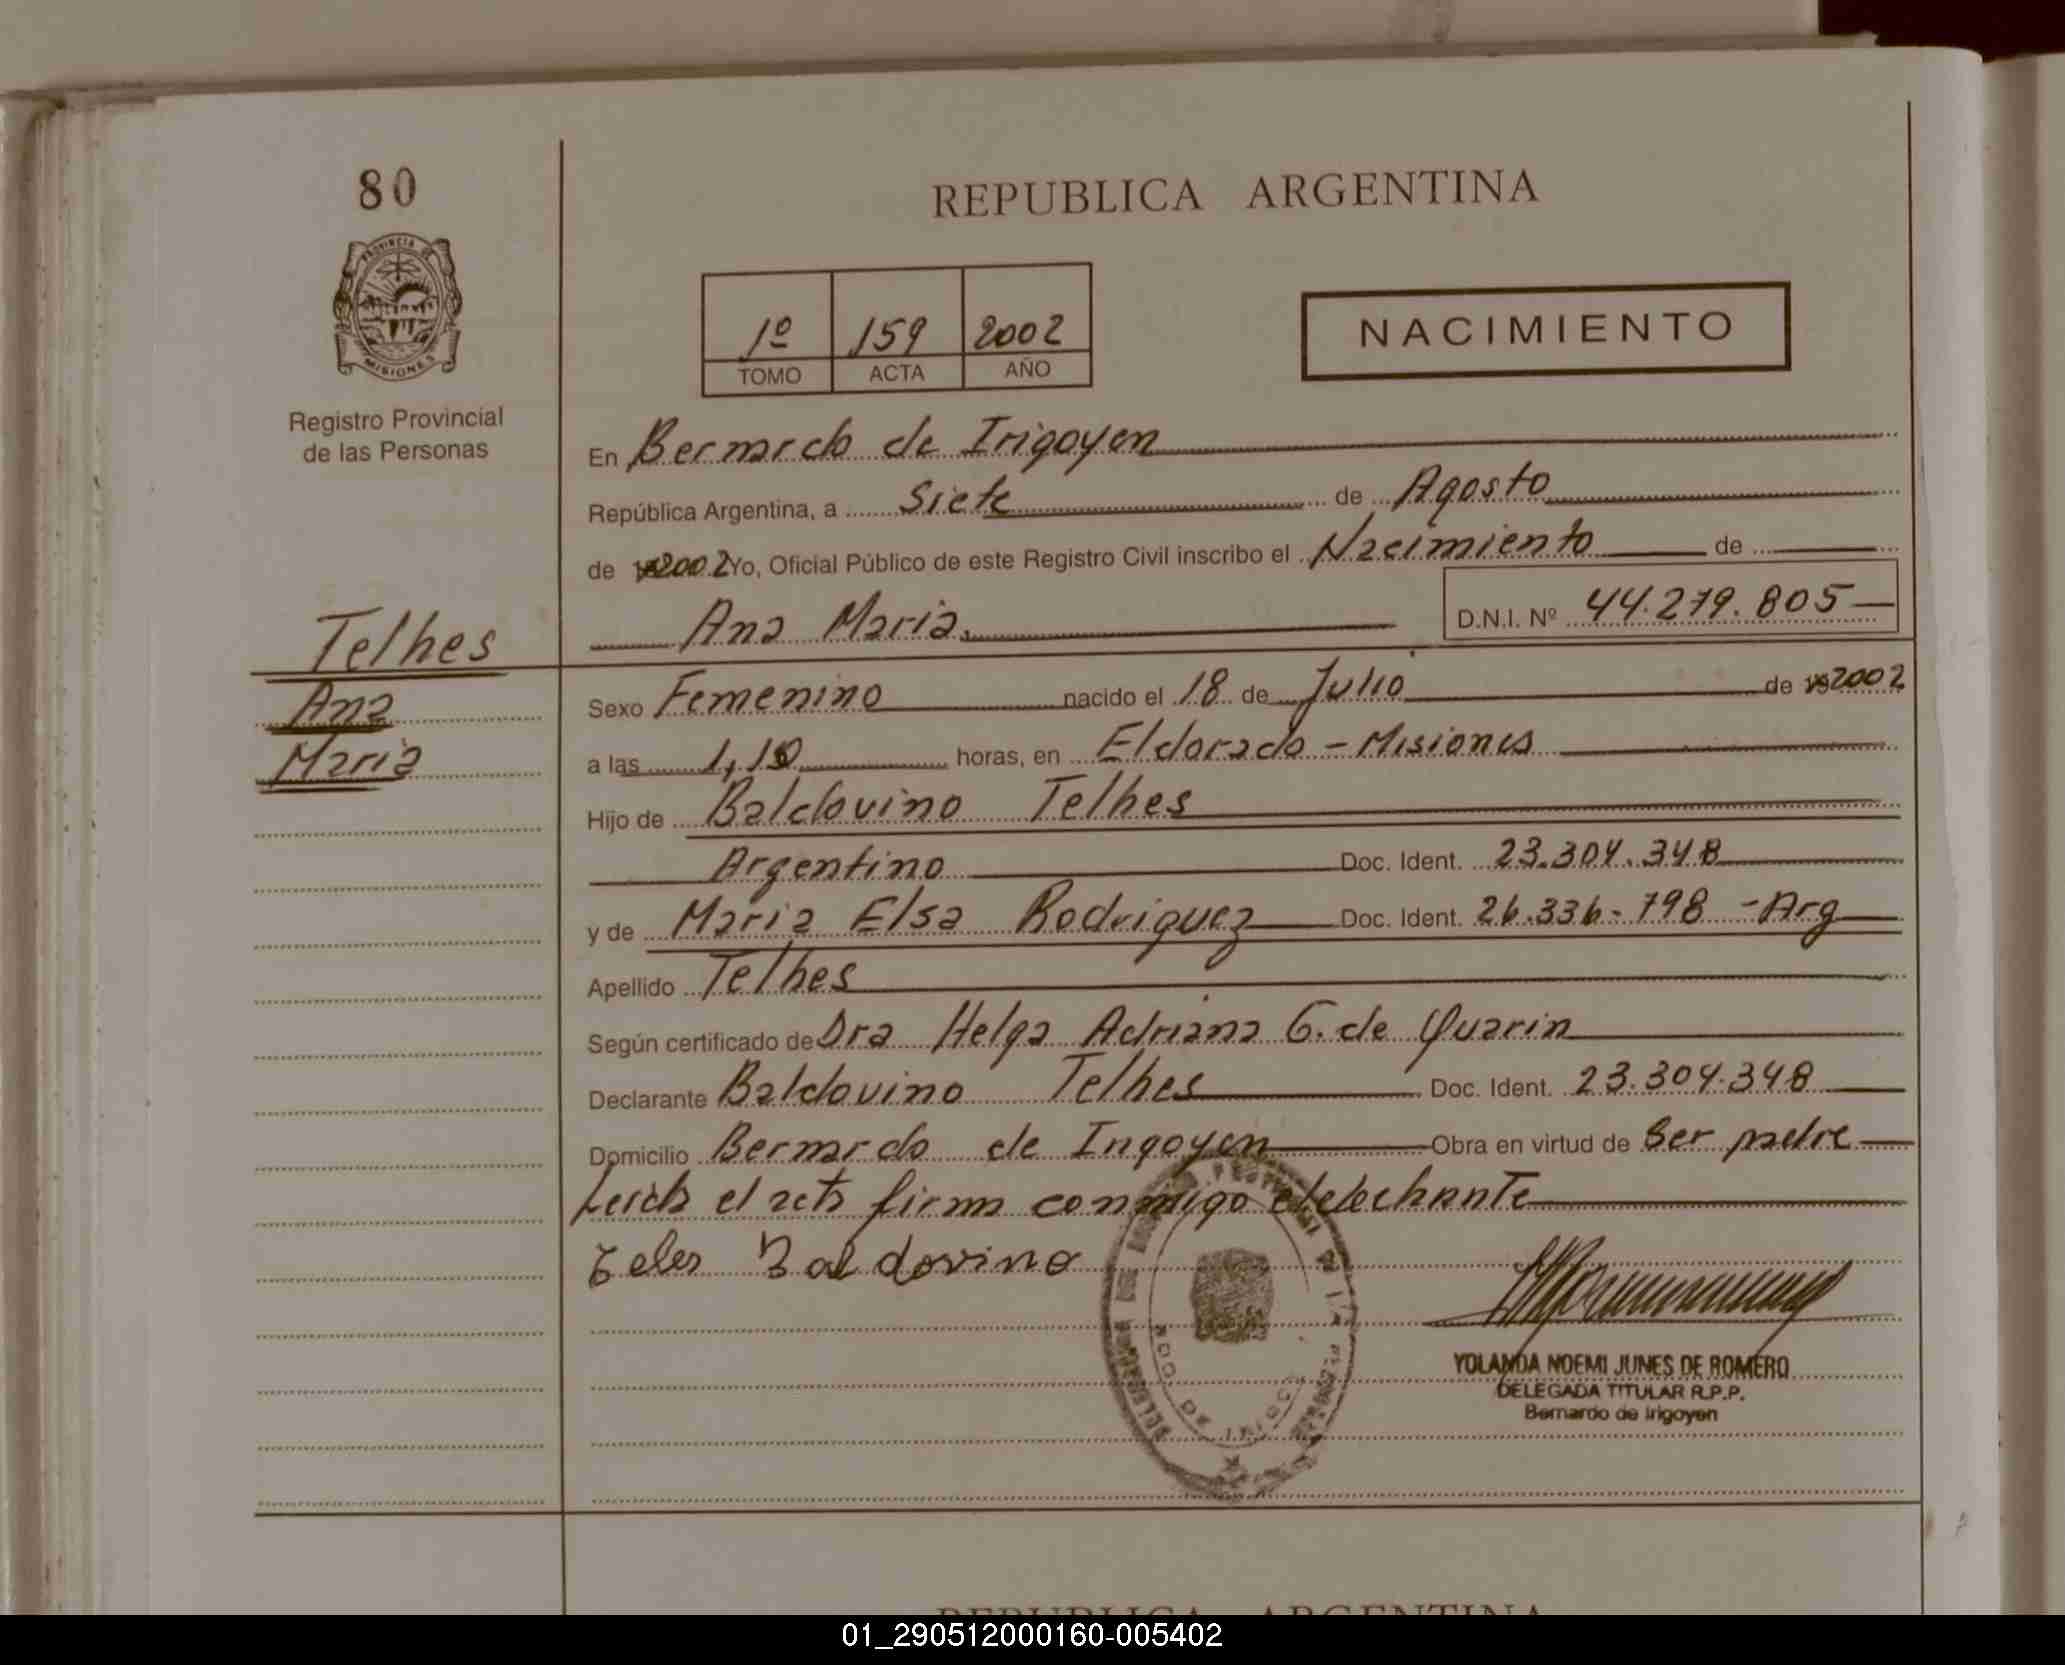 80
REPUBLICA ARGENTINA
PROVINCIA DE
MISIONES
Registro Provincial
de las Personas
1º 159 2002
TOMO ACTA AÑO
NACIMIENTO
En Bernardo de Irigoyen
República Argentina, a Siete de Agosto
de 2002 Yo, Oficial Público de este Registro Civil inscribo el Nacimiento de
Ana Maria. D.N.I. Nº 44.279.805
Telhes
Ana
Maria
Sexo Femenino nacido el 18 de Julio de 2002
a las 1,10 horas, en Eldorado - Misiones
Hijo de Baldovino Telhes
Argentino Doc. Ident. 23.304.348
y de Maria Elsa Rodriguez Doc. Ident. 26.336.798 - Arg
Apellido Telhes
Según certificado de Dra Helga Adriana G. de Quarin
Declarante Baldovino Telhes Doc. Ident. 23.304.348
Domicilio Bernardo de Irigoyen Obra en virtud de Ser padre
Leida el acta firma conmigo el declarante
Teles Baldovino
YOLANDA NOEMI JUNES DE ROMERO
DELEGADA TITULAR R.P.P.
Bernardo de Irigoyen
REPUBLICA ARGENTINA
01_290512000160-005402